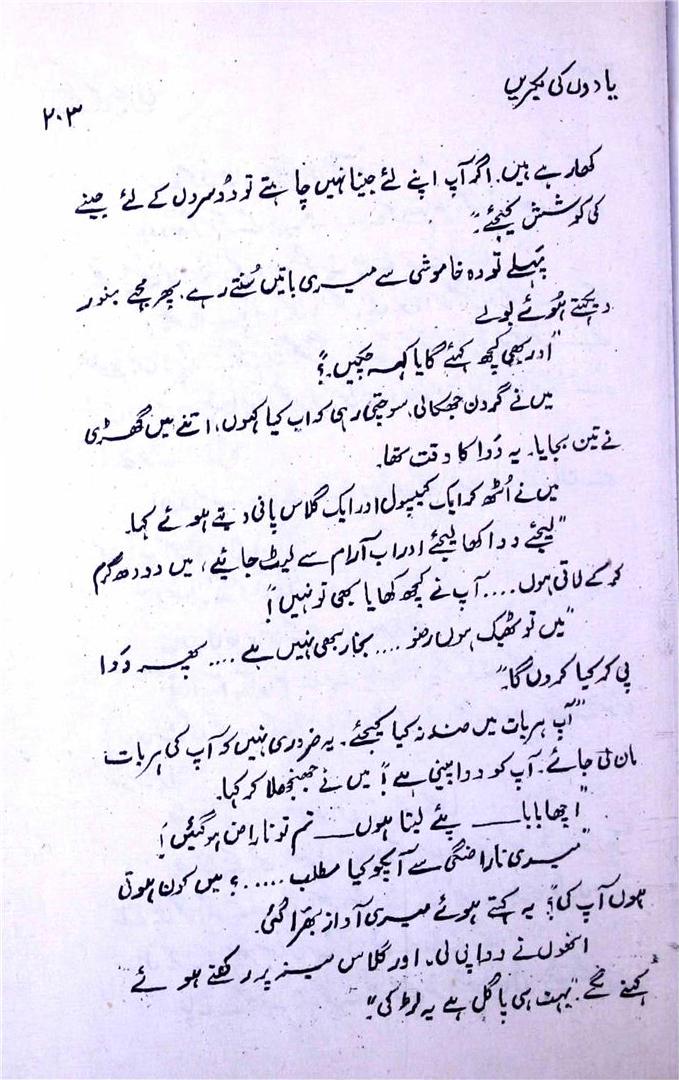 یادوں کی لکیریں
۲۰۳
کھا رہے ہیں۔ اگر آپ اپنے لئے جینا نہیں چاہتے تو دوسروں کے لئے جینے
کی کوشش کیجئے۔"
پہلے تو وہ خاموشی سے میری باتیں سُنتے رہے، پھر مجھے بغور
دیکھتے ہُوئے بولے
"اور بھی کچھ کہئے گا یا کہہ چکیں۔؟"
میں نے گردن جھکالی، سوچتی رہی کہ اب کیا کہوں، اتنے میں گھڑی
نے تین بجایا۔ یہ دَوا کا وقت تھا۔
میں نے اُٹھ کر ایک کیپسول اور ایک گلاس پانی دیتے ہوئے کہا۔
"لیجئے دوا کھا لیجئے اور اب آرام سے لیٹ جائیے، میں دودھ گرم
کر کے لاتی ہوں .... آپ نے کچھ کھایا بھی تو نہیں!"
"میں تو ٹھیک ہوں رضو .... بخار بھی نہیں ہے .... پھر دَوا
پی کر کیا کروں گا۔"
"آپ ہر بات میں ضد نہ کیا کیجئے۔ یہ ضروری نہیں کہ آپ کی ہر بات
مان لی جائے۔ آپ کو دوا پینی ہے!" میں نے جھنجھلا کر کہا۔
"اچھا بابا ــــــ پئے لیتا ہوں ــــــ تم تو ناراض ہو گئیں!"
"میری ناراضگی سے آپکو کیا مطلب .....؟ میں کون ہوتی
ہوں آپ کی؟" یہ کہتے ہوئے میری آواز بھرا گئی۔
انھوں نے دوا پی لی۔ اور گلاس میز پر رکھتے ہوئے
کہنے لگے۔ "بہت ہی پاگل ہے یہ لڑکی"۔